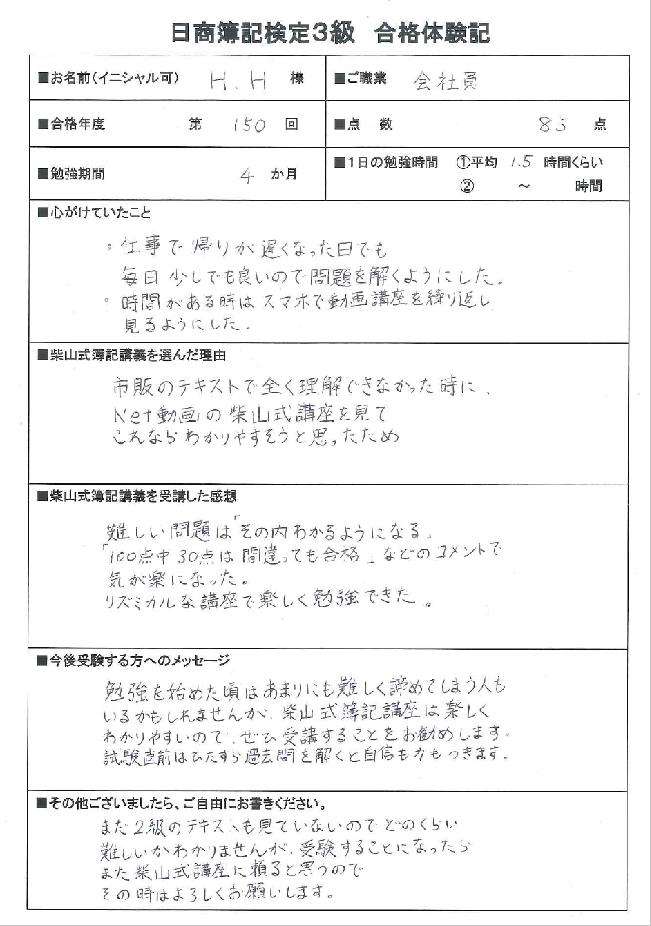 日商簿記検定3級 合格体験記
■お名前(イニシャル可) H.H 様
■ご職業 会社員
■合格年度 第 150 回
■点 数 85 点
■勉強期間 4 か月
■1日の勉強時間 ①平均 1.5 時間くらい
② ~ 時間
■心がけていたこと
。仕事で帰りが遅くなった日でも
毎日少しでも良いので問題を解くようにした。
。時間がある時はスマホで動画講座を繰り返し
見るようにした。
■柴山式簿記講義を選んだ理由
市販のテキストで全く理解できなかった時に、
Net動画の柴山式講座を見て
これならわかりやすそうと思ったため
■柴山式簿記講義を受講した感想
難しい問題は「その内わかるようになる」
「100点中30点は間違っても合格」などのコメントで
気が楽になった。
リズミカルな講座で楽しく勉強できた。
■今後受験する方へのメッセージ
勉強を始めた頃はあまりにも難しく諦めてしまう人も
いるかもしれませんが、柴山式簿記講座は楽しく
わかりやすいので、ぜひ受講することをお勧めします。
試験直前はひたすら過去問を解くと自信も力もつきます。
■その他ございましたら、ご自由にお書きください。
まだ2級のテキストも見ていないのでどのくらい
難しいかわかりませんが、受験することになったら
また柴山式講座に頼ると思うので
その時はよろしくお願いします。